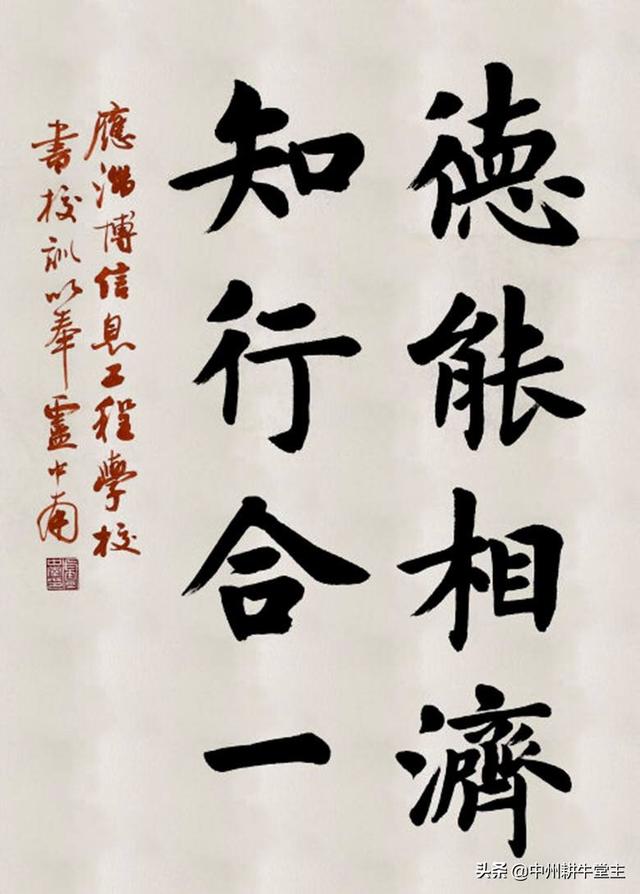 德能相濟
知行合一
應淄博信息工程學校
書校訓以奉 盧中南
头条 @中州耕牛堂主